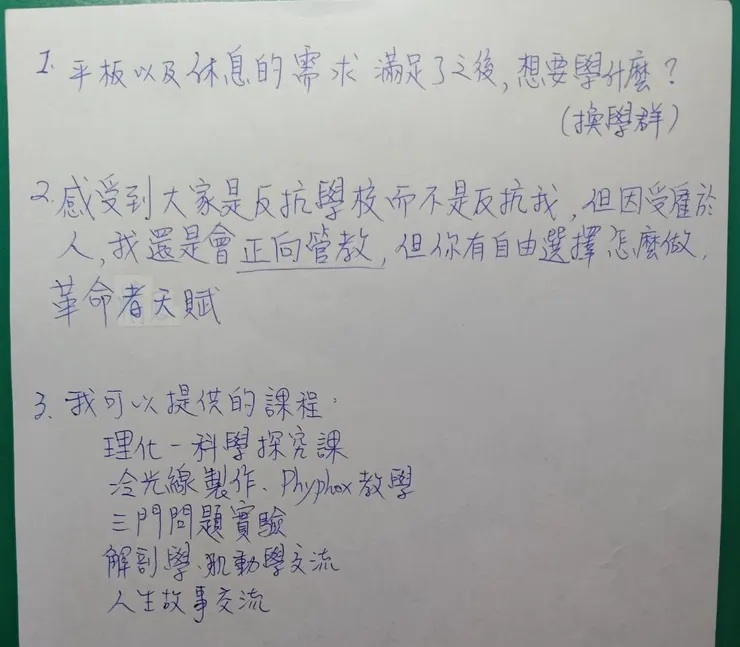 1. 平板以及休息的需求滿足了之後,想要學什麼?
(換學群)
2. 感受到大家是反抗學校而不是反抗我,但因受雇於
人,我還是會正向管教,但你有自由選擇怎麼做,
革命者天賦
3. 我可以提供的課程:
理化-科學探究課
冷光線製作、Phyphox教學
三門問題實驗
解剖學、肌動學交流
人生故事交流